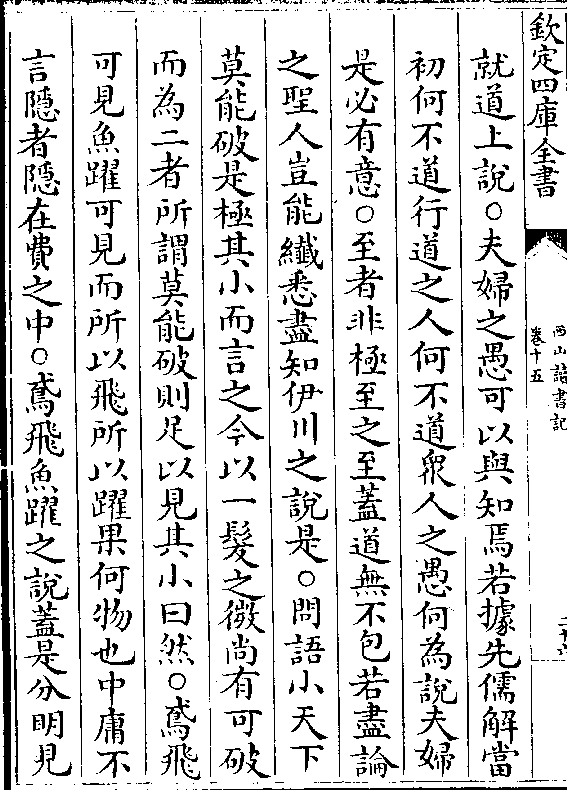 欽定四庫全書
西山讀書記
卷十五
就道上說○夫婦之愚可以與知焉若據先儒解當
初何不道行道之人何不道衆人之愚何為說夫婦
是必有意○至者非極至之至蓋道無不包若盡論
之聖人豈能纖悉盡知伊川之說是○問語小天下
莫能破是極其小而言之今以一髮之微尚有可破
而為二者所謂莫能破則足以見其小曰然○鳶飛
可見魚躍可見而所以飛所以躍果何物也中庸不
言隱者隱在費之中○鳶飛魚躍之說蓋是分明見